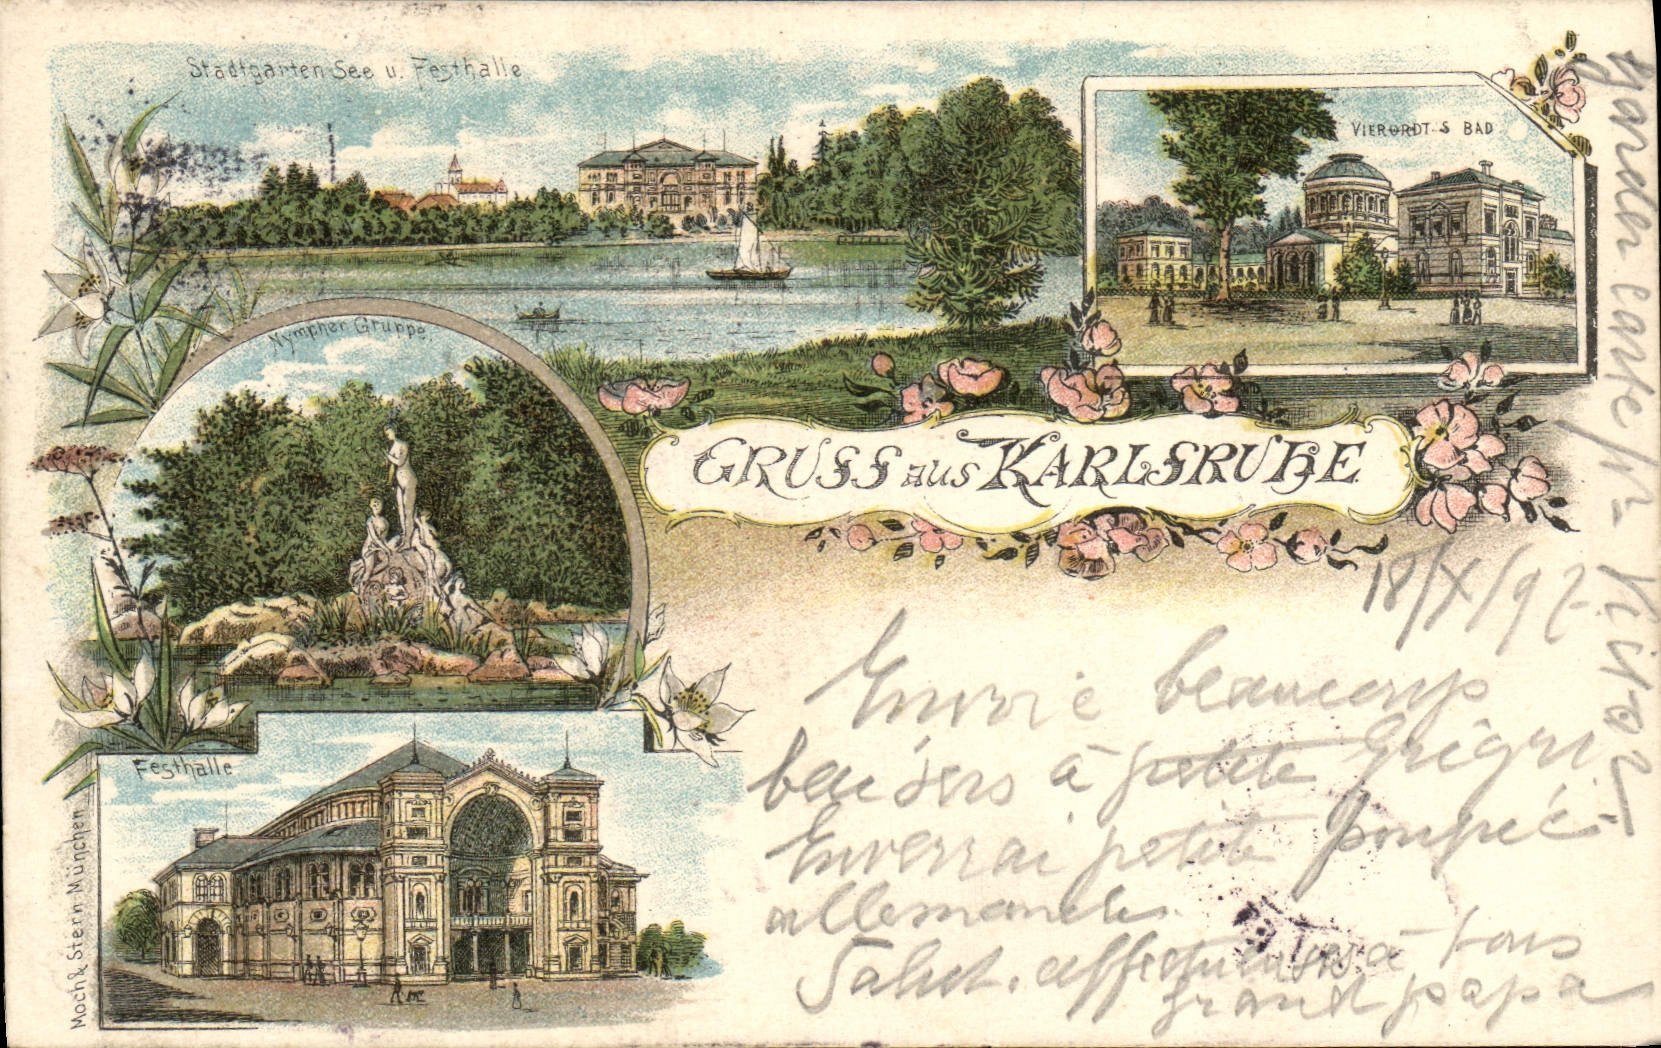 Stadtgarten See u. Festhalle
VIERORDT S BAD
Nymphen Gruppe.
GRUSS aus KARLSRUHE
Festhalle
Moch & Stern München
18/X/97
Envoie beaucoup
baisers à petite Grigri
Enverrai petite poupée
allemande.
Salut. affectueuses à tous
grand papa
garder carte